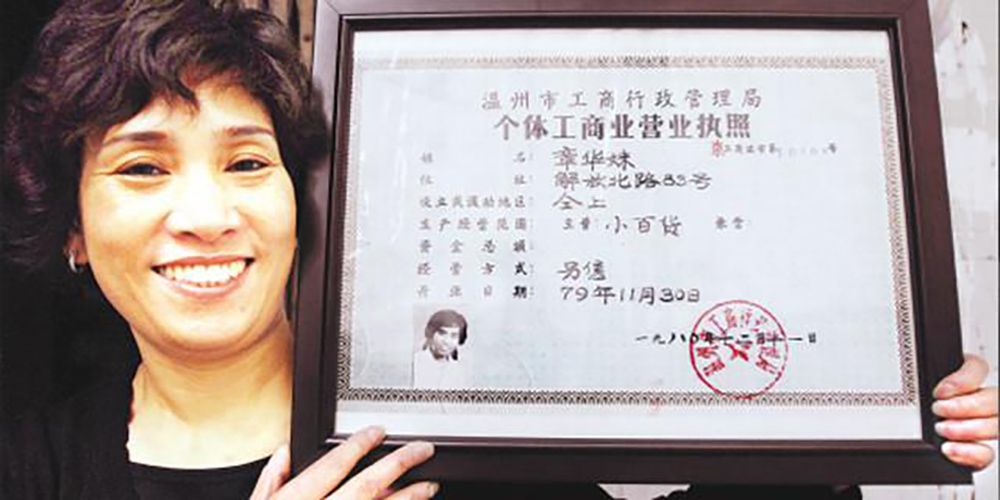 温州市工商行政管理局
个体工商业营业执照
姓 名: 章华妹
住 址: 解放北路83号
设立或流动地区: 仝上
生产经营范围: 主营: 小百货 兼营:
资金总额:
经营方式: 另售
开业日期: 79年11月30日
一九八〇年十二月十一日